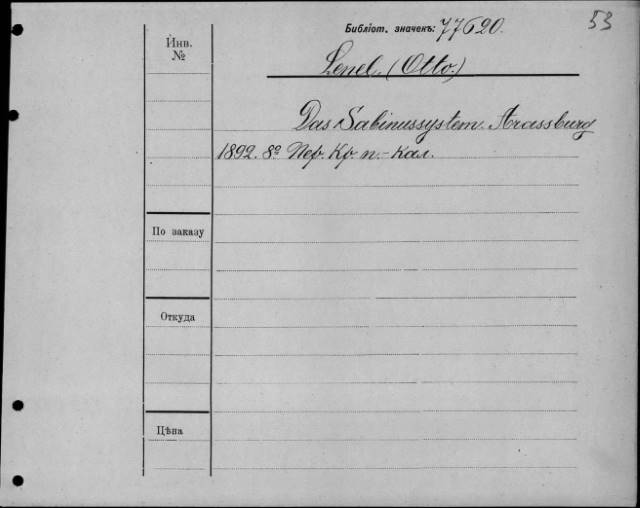 53
Библіот. значекъ: 77620.
Инв.
№
Lenel. (Otto.)
Das Sabinussystem. Strassburg
1892. 8º Пер. Кр. п.-кал.
По заказу
Откуда
Цѣна